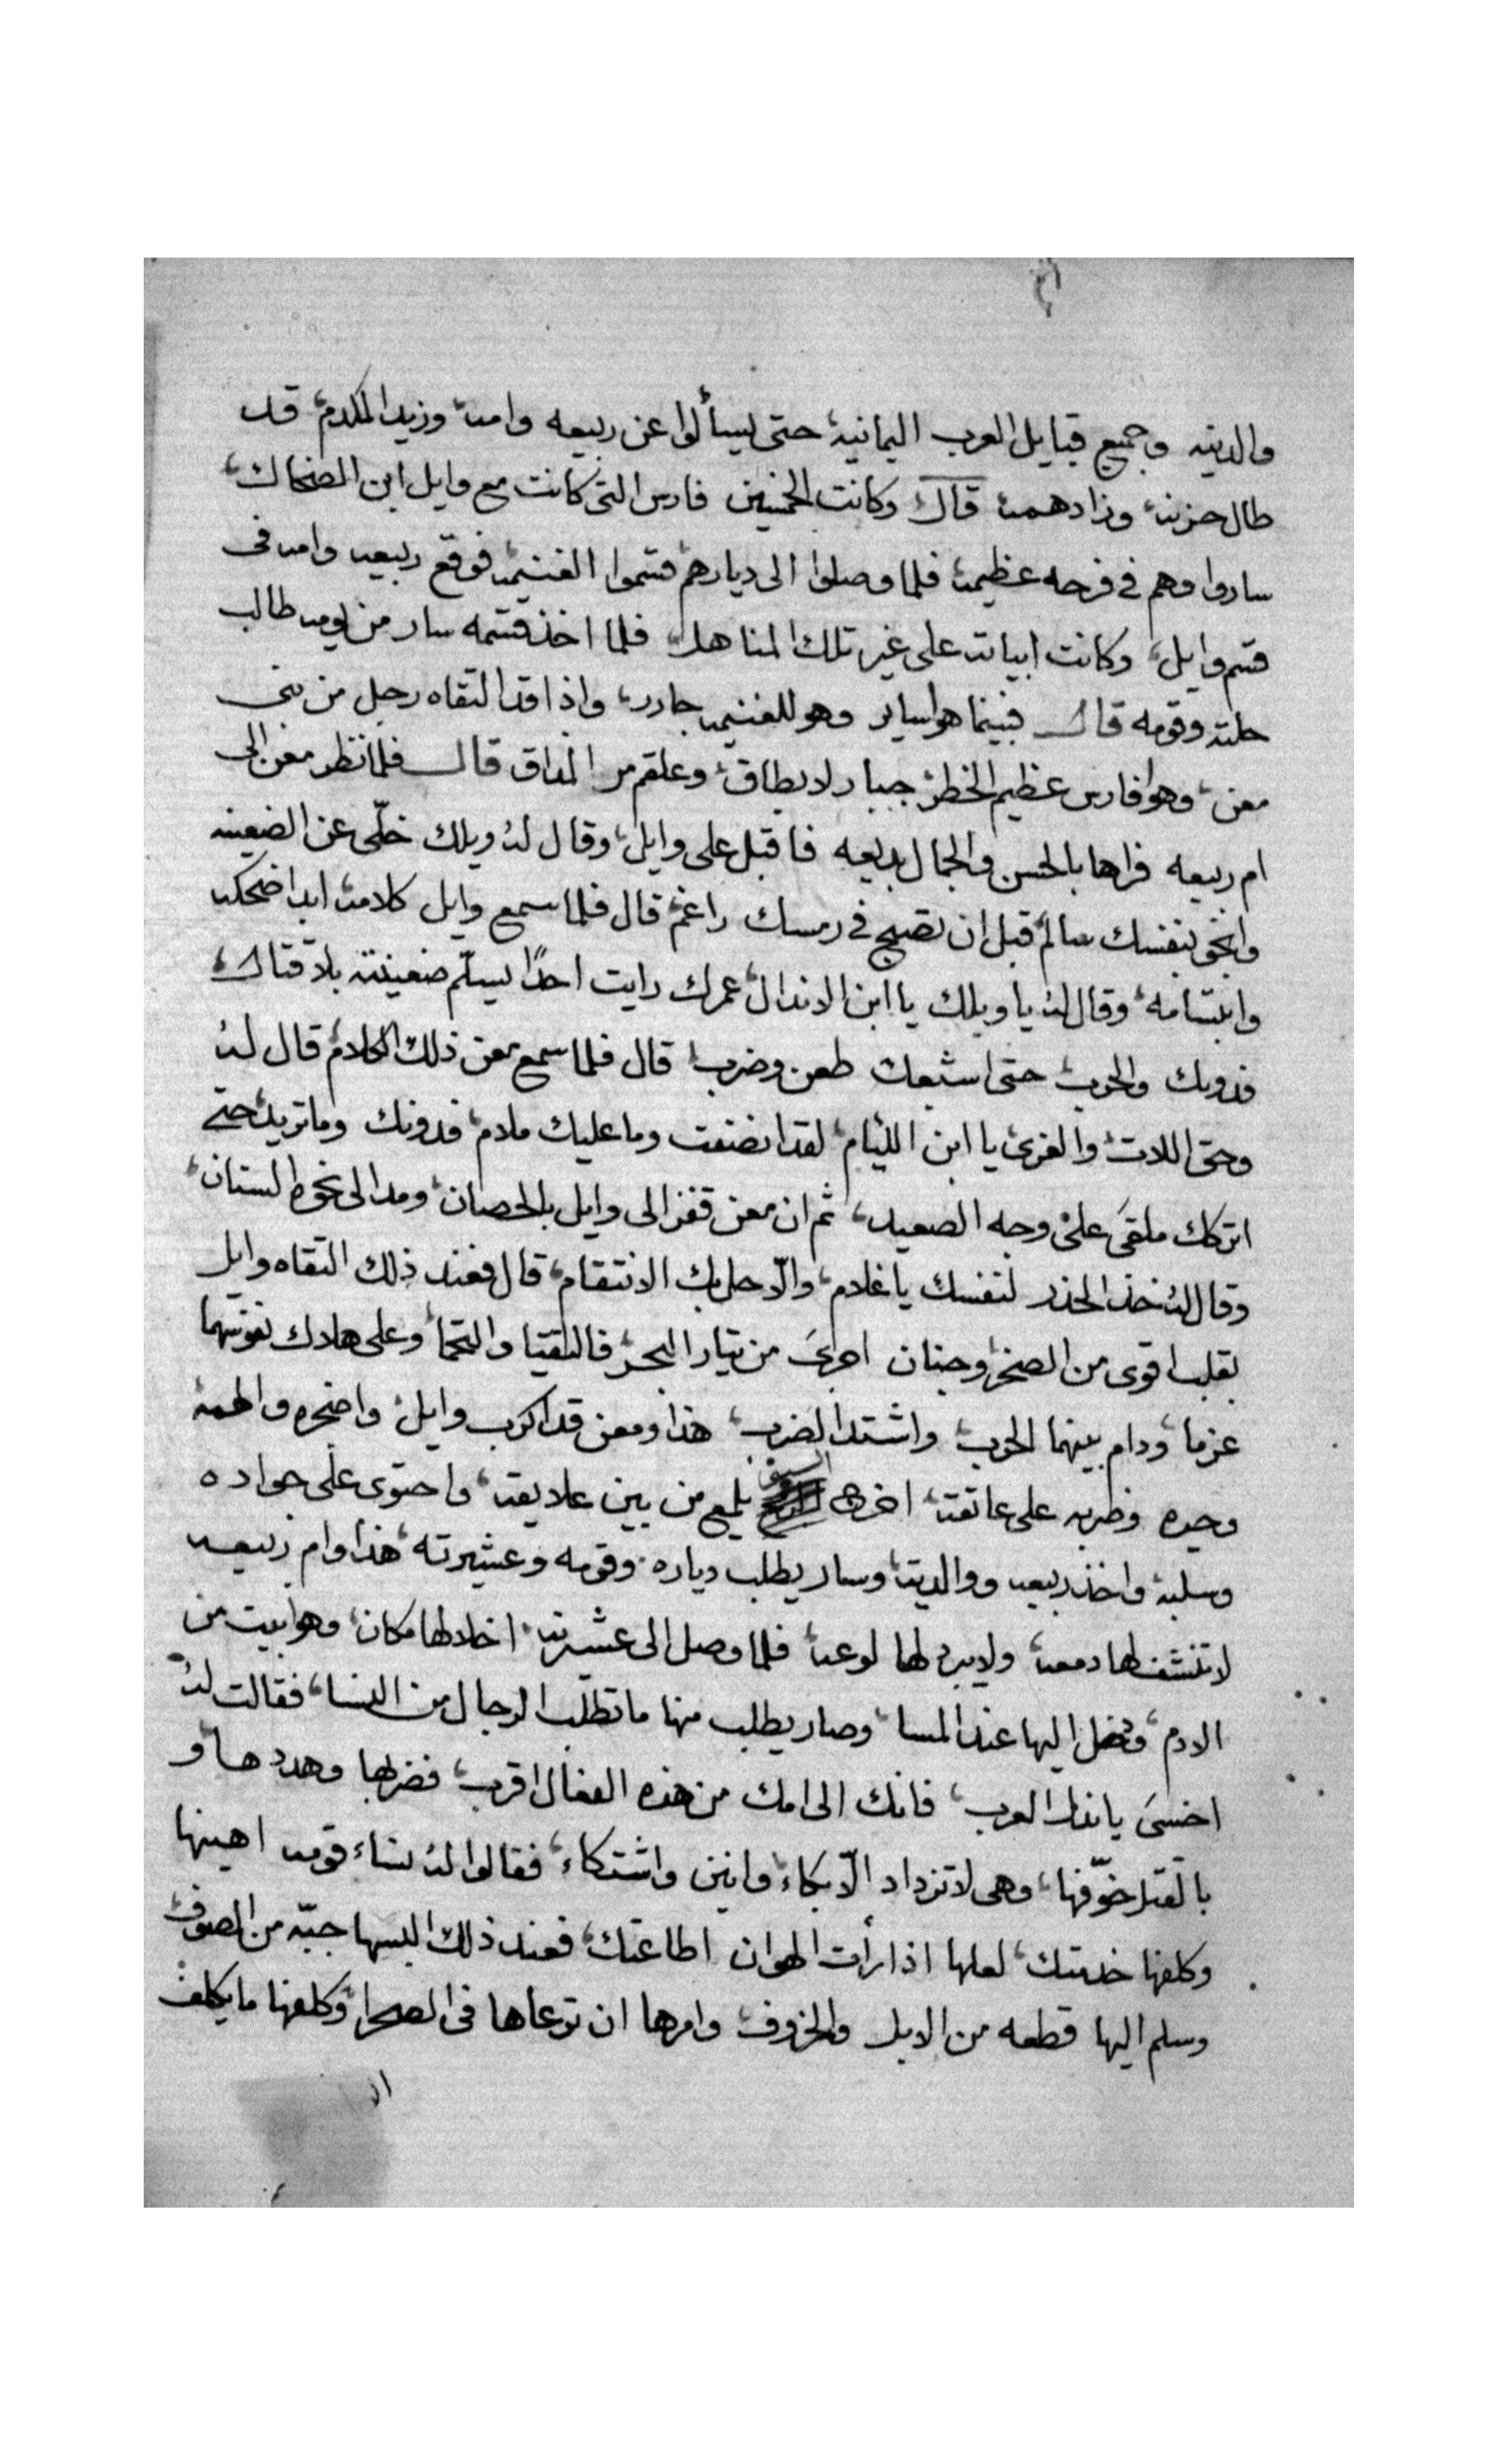 والديته وجميع قبايل العرب اليمانيه، حتى ليسألوا عن ربيعه وامه، وزيد المكدم، قد
طال حزنه، وزاد همه، قال وكانت الخمسين فارس التى كانت مع وايل ابن الضحاك،
ساروا وهم فى فرحه عظيمه، فلما وصلوا الى ديارهم، قسموا الغنيمه، فوقع ربيعه وامه فى
قسم وايل، وكانت ابياته على غير تلك المناهل، فلما اخذ قسمه سار من يومه طالب
حلته وقومه قال فبينما هوا ساير وهو للغنيمه حادر، واذا قد التقاه رجل من بنى
معن، وهوا فارس عظيم الخطر، جبار لا يطاق، وعلقم مر المداق قال فلما نظر معن الى
ام ربيعه فراها بالحسن والجمال بديعه فاقبل على وايل، وقال له ويلك خلّى عن الضعينه
وانجو بنفسك سالم، قبل ان تصبح فى رمسك راغم، قال فلما سمع وايل كلامه، ابدا ضحكه
وابتسامه، وقال له يا ويلك يا ابن الاندال، عمرك رايت احدًا يسلّم ضعينته بلا قتال،
فدونك والحرب، حتى اشبعك طعن وضرب، قال فلما سمع معن ذلك الكلام، قال له
وحق اللات، والعزى، يا ابن الليام، لقد انصفت وما عليك ملام، فدونك وما تريد، حتى
اتركك ملقى على وجه الصعيد، ثم ان معن قفز الى وايل بالحصان، ومد الى نحوه السنان،
وقال له خذ الحذر لنفسك يا غلام، والّا حل بك الانتقام، قال فعند ذلك التقاه وايل
بقلب اقوى من الصخر، وجنان اجرى من تيار البحر، فالتقيا والتحما، وعلى هلاك نفوسهما
عزما، ودام بينهما الحرب، واشتد الضرب، هذا ومعن قد اكرب وايل، واضجره والهمه
وحيره وضربه على عاتقه، اخرج السيف يلمع من بين علايقه، واحتوى على جواده
وسلبه، واخذ ربيعه ووالديته، وسار يطلب دياره، وقومه وعشيرته، هذا وام ربيعه
لا تنشف لها دمعه، ولا يبرد لها لوعه، فلما وصل الى عشيرته، اخلا لها مكان، وهوا بيت من
الادم، ودخل اليها عند المسا، وصار يطلب منها ما تطلب الرجال من النسا، فقالت له
اخسى يا ندل العرب، فانك الى امك من هذه الفعال اقرب، فضربها وهددها، و
بالقتل خوّفها، وهى لا تزداد الّا بكاء، وانين واشتكاء، فقالوا له نساء قومه اهينها
وكلفها خدمتك، لعلها اذا رأت الهوان اطاعتك، فعند ذلك البسها جبّه من الصوف،
وسلم اليها قطعه من الابل والخروف، وامرها ان ترعاها فى الصحرا، وكلفها ما يكلف